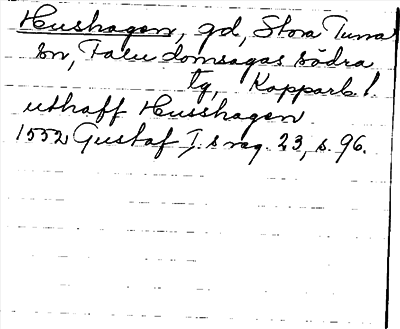 Hushagen, gd, Stora Tuna
sn, Falu domsagas södra
tg, Kopparb.l.
uthaff Husshagen
1552 Gustaf I.s reg. 23, s. 96.